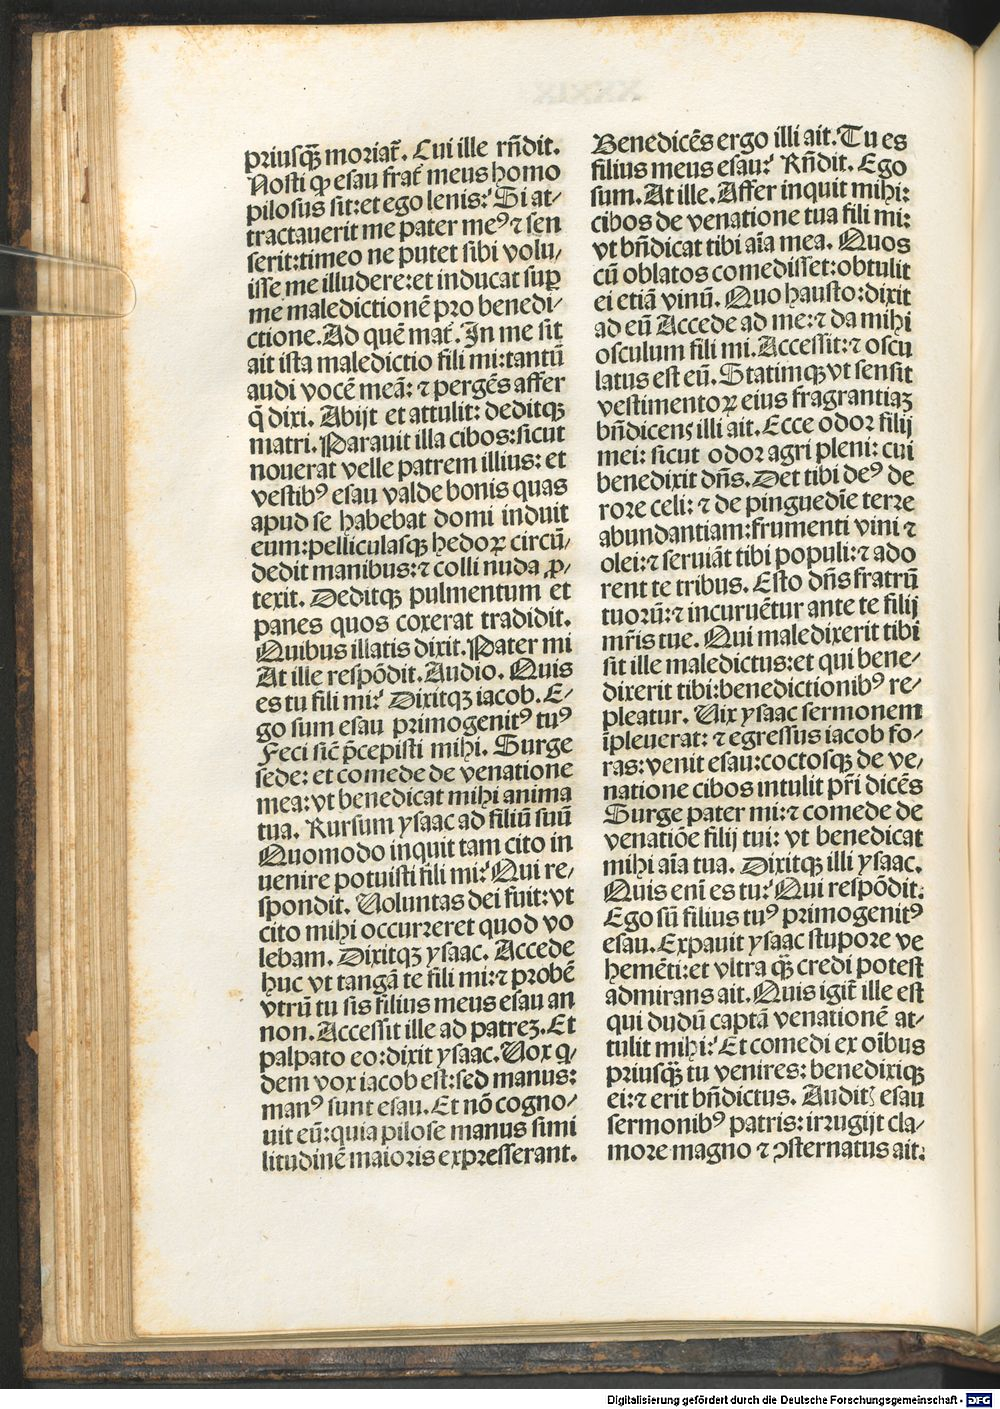 priusq̃ȝ moriat᷑. Cui ille rñdit.
Nosti ꝙ esau frat᷑ meus homo
pilosus sit:et ego lenis:ʼ Si at⸗
tractauerit me pater meꝰ ⁊ sen
serit:timeo ne putet sibi volu⸗
isse me illudere:et inducat suꝑ
me maledictionē pro benedi⸗
ctione.Ad quē mat᷑. In me sit
ait ista maledictio fili mi:tantū
audi vocē meā: ⁊ pergēs affer
q̄ dixi. Abijt et attulit: deditqȝ
matri.Parauit illa cibos:sicut
nouerat velle patrem illius: et
vestibꝰ esau valde bonis quas
apud se habebat domi induit
eum:pelliculasqȝ hedoꝝ circū⸗
dedit manibus:⁊ colli nuda ꝓ⸗
texit. Deditqȝ pulmentum et
panes quos coxerat tradidit.
Quibus illatis dixit.Pater mi
At ille respōdit.Audio. Quis
es tu fili mi:ʼ Dixitqȝ iacob. E⸗
go sum esau primogenitꝰ tuꝰ
Feci sic̄ p̄cepisti mihi. Surge
sede: et comede de venatione
mea:vt benedicat mihi anima
tua. Rursum ysaac ad filiū suū
Quomodo inquit tam cito in
uenire potuisti fili mi:ʼ Qui re⸗
spondit. Voluntas dei fuit:vt
cito mihi occurreret quod vo
lebam. Dixitqȝ ysaac. Accede
huc vt tangā te fili mi:⁊ probē
vtrū tu sis filius meus esau an
non.Accessit ille ad patreȝ.Et
palpato eo:dixit ysaac.Vox q⸗
dem vox iacob est:sed manus:
manꝰ sunt esau.Et nō cogno⸗
uit eū:quia pilose manus simi
litudinē maioris expresserant.
Benedicēs ergo illi ait.Tu es
filius meus esau:ʼ Rñdit. Ego
sum.At ille.Affer inquit mihi:
cibos de venatione tua fili mi:
vt bñdicat tibi aĩa mea. Quos
cū oblatos comedisset:obtulit
ei etiā vinū. Quo hausto:dixit
ad eū Accede ad me:⁊ da mihi
osculum fili mi.Accessit:⁊ oscu
latus est eū.Statimqȝ vt sensit
vestimentoꝝ eius fragrantiaȝ
bñdicens illi ait.Ecce odor filij
mei: sicut odor agri pleni: cui
benedixit dñs.Det tibi deꝰ de
rore celi: ⁊ de pinguedīe terre
abundantiam:frumenti vini ⁊
olei:⁊ seruiāt tibi populi:⁊ ado
rent te tribus. Esto dñs fratrū
tuorū:⁊ incuruētur ante te filij
mr̃is tue. Qui maledixerit tibi
sit ille maledictus:et qui bene⸗
dixerit tibi:benedictionibꝰ re⸗
pleatur. Vix ysaac sermonem
īpleuerat: ⁊ egressus iacob fo⸗
ras:venit esau:coctosqȝ de ve⸗
natione cibos intulit pr̃i dicēs
Surge pater mi:⁊ comede de
venatiōe filij tui: vt benedicat
mihi aĩa tua. Dixitqȝ illi ysaac.
Quis enī es tu:ʼ Qui respōdit.
Ego sū filius tuꝰ primogenitꝰ
esau.Expauit ysaac stupore ve
hemēti:et vltra q̃ȝ credi potest
admirans ait.Quis igit᷑ ille est
qui dudū captā venationē at⸗
tulit mihi:ʼ Et comedi ex oĩbus
priusq̃ȝ tu venires: benedixiqȝ
ei:⁊ erit bñdictus. Auditꝭ esau
sermonibꝰ patris:irrugijt cla⸗
more magno ⁊ ꝯsternatus ait.
Digitalisierung gefördert durch die Deutsche Forschungsgemeinschaft - DFG